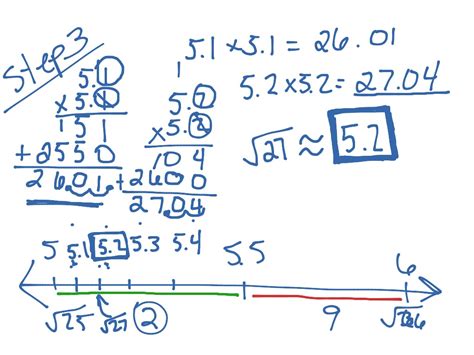 Step 3
5.1
x 5.1
151
+ 2550
26.01
5.2
x 5.2
104
+ 2600
27.04
5.1 x 5.1 = 26.01
5.2 x 5.2 = 27.04
√27 ≈ 5.2
5 5.1 5.2 5.3 5.4 5.5 6
√25 √27 2 9 √36